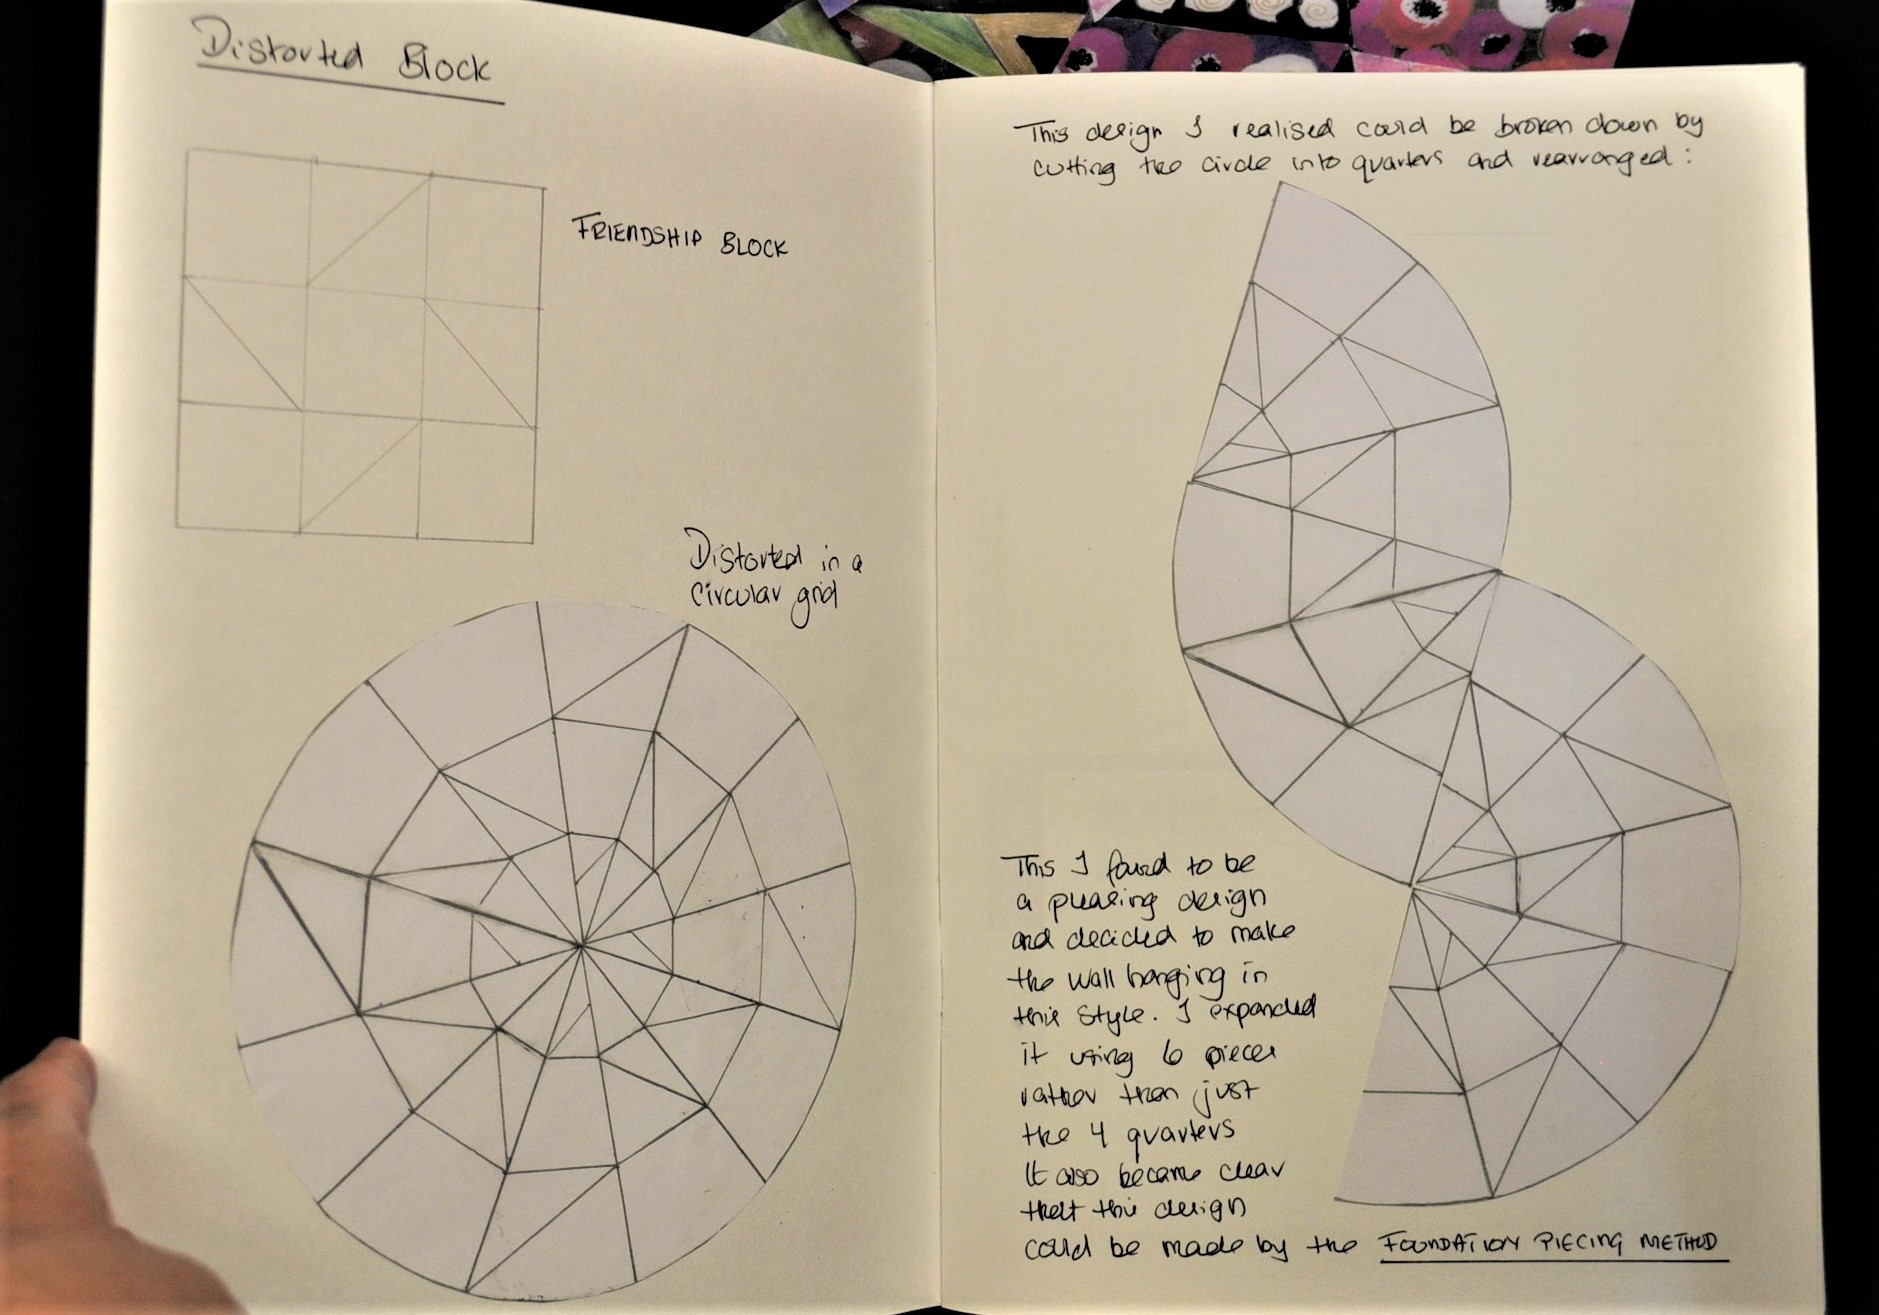 Distorted Block
FRIENDSHIP BLOCK
Distorted in a
circular grid
This design I realised could be broken down by
cutting the circle into quarters and rearranged :
This I found to be
a pleasing design
and decided to make
the wall hanging in
this style. I expanded
it using 6 pieces
rather than just
the 4 quarters
It also became clear
that this design
could be made by the FOUNDATION PIECING METHOD